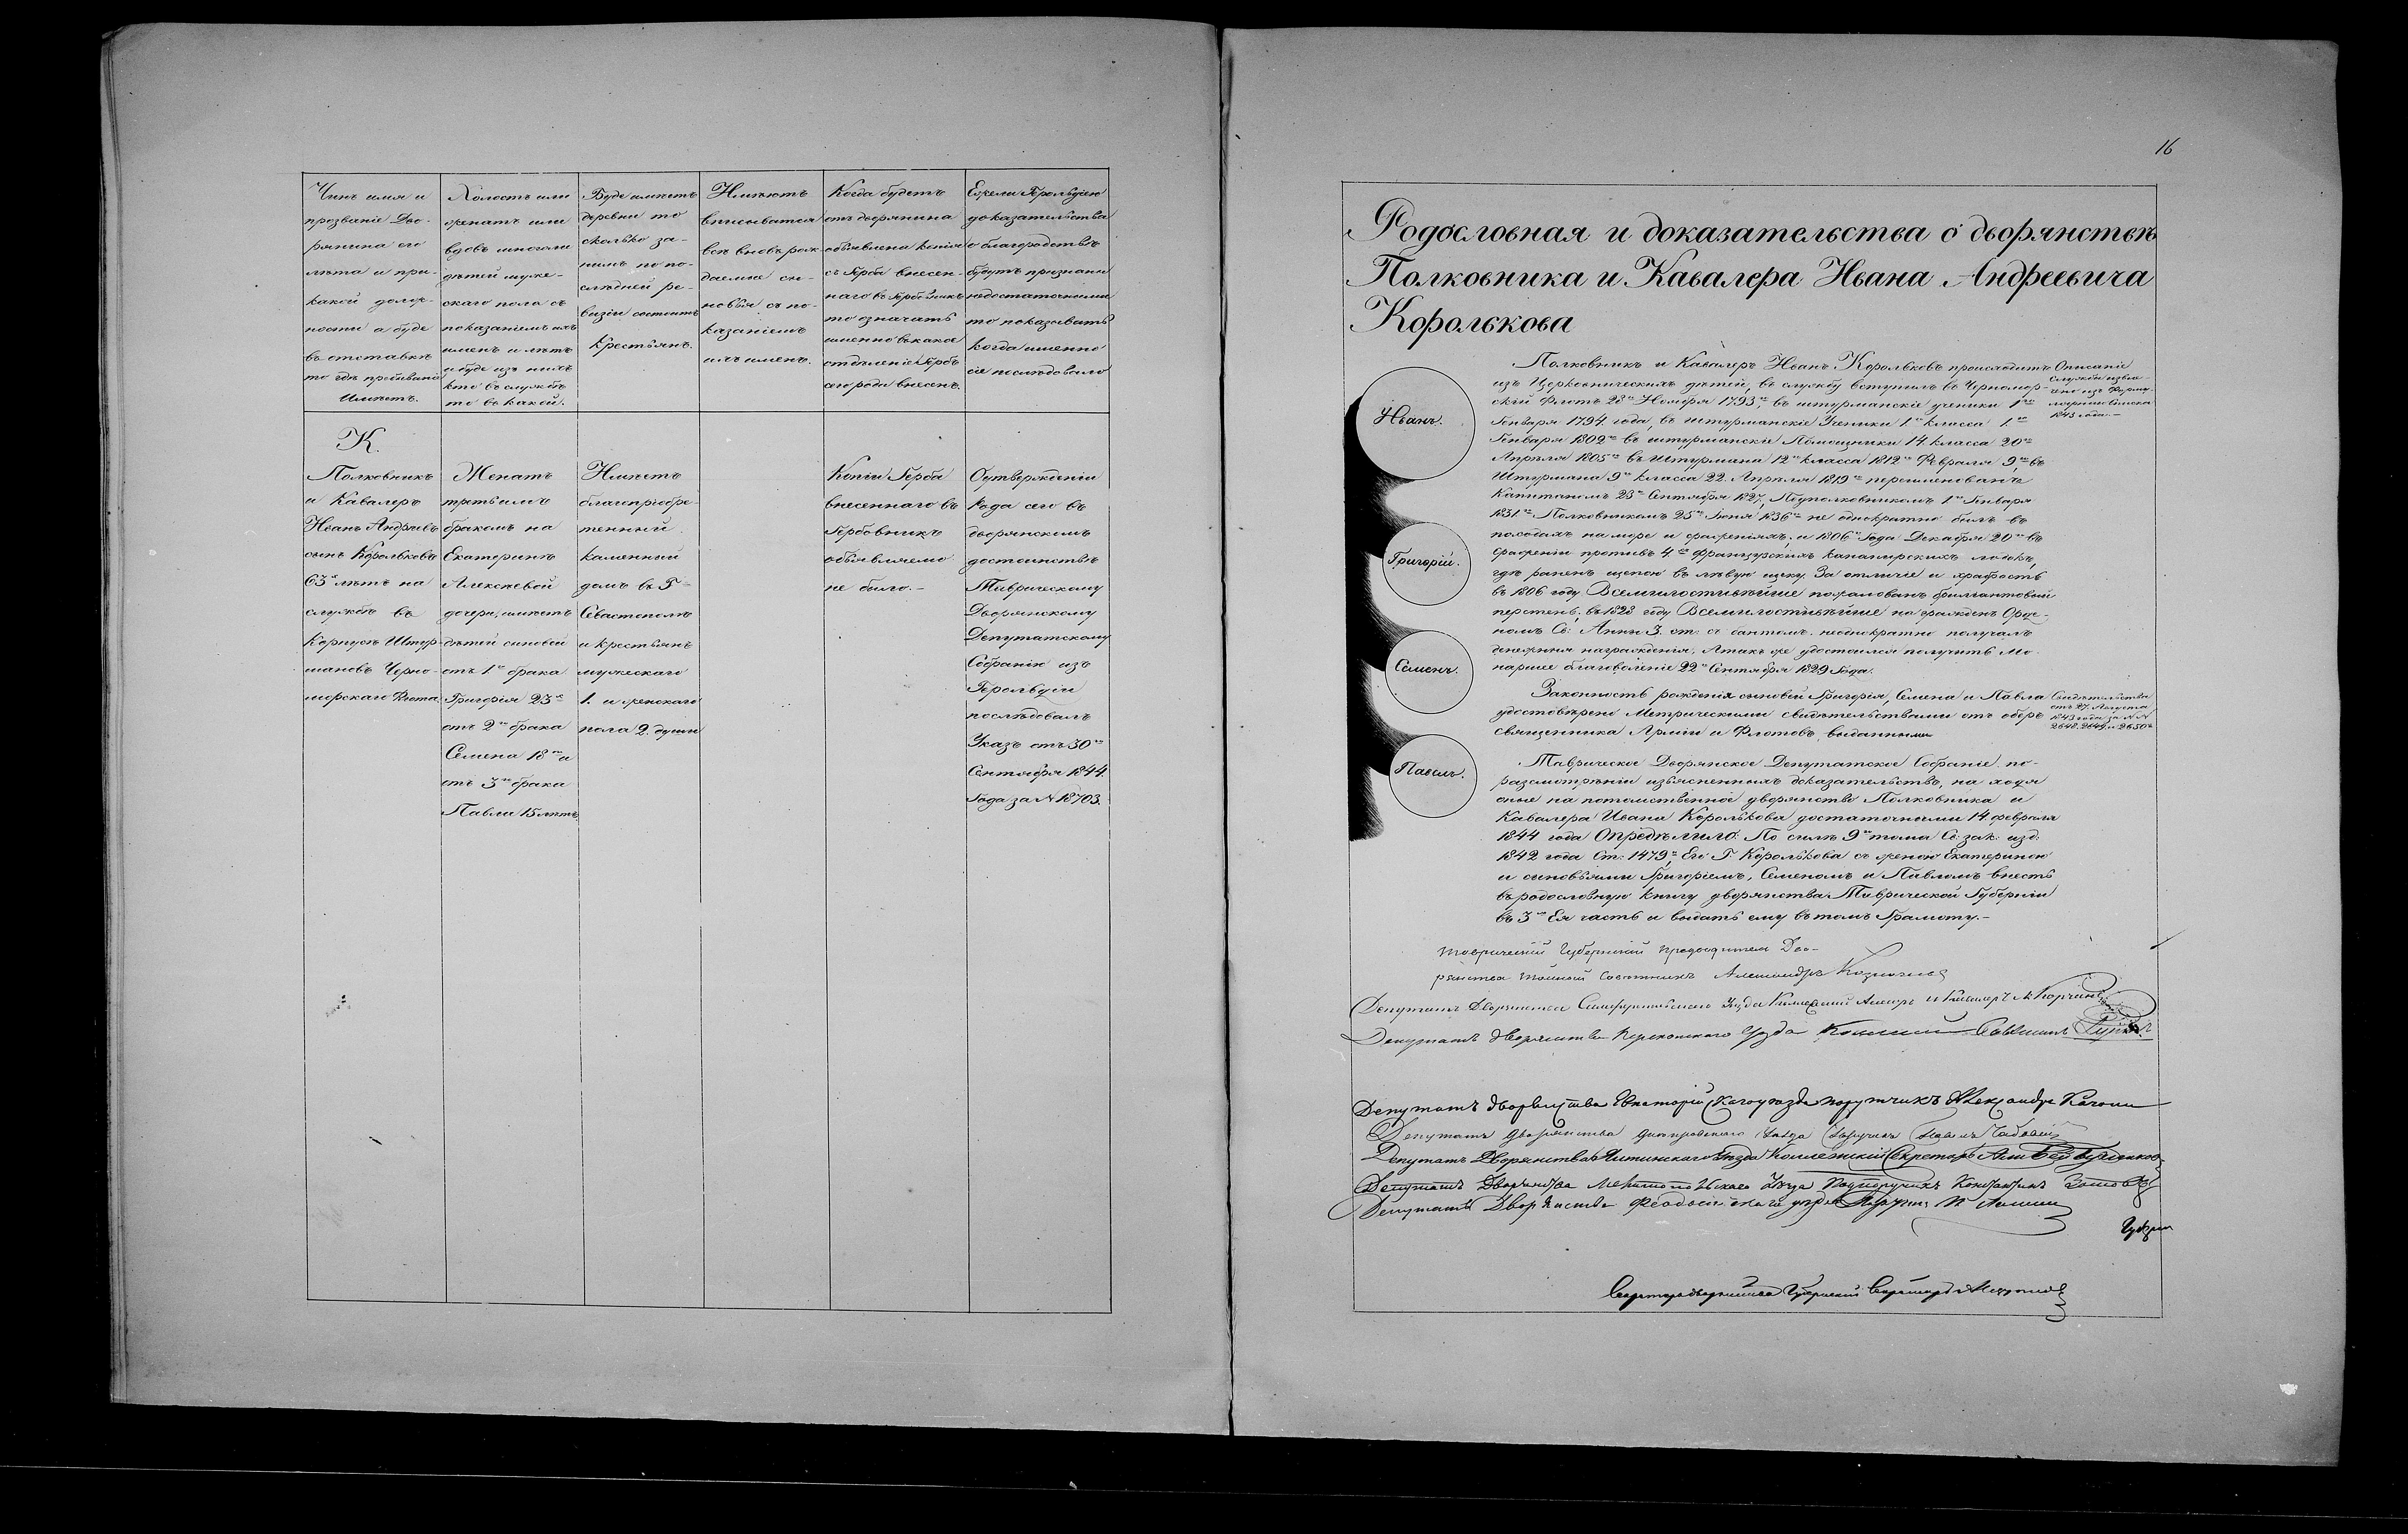 Чинъ имя и
прозваніе Дво-
рянина его
лѣта и при
какой долж-
ности а буде
въ отставкѣ
то гдѣ пребываніе
имѣетъ.
Холостъ или
женатъ или
вдовъ много ли
дѣтей муже-
скаго пола съ
показаніемъ ихъ
именъ и лѣтъ
и буде изъ нихъ
кто въ службѣ
то въ какой.
Буде имѣетъ
деревни то
сколько за
нимъ по по-
слѣдней ре-
визіи состоитъ
крестьянъ.
Имѣютъ
вписыватся
всѣ вновь рож
даемые сы-
новья съ по-
казаніемъ
ихъ именъ.
Когда будетъ
отъ дворянина
объявлена копія
съ Герба внесен-
наго въ Гербовникъ
то означать
именно въ какое
отдѣленіе Гербъ
его рода внесенъ.
Ежели Герольдіею
доказательства
о благородствѣ
будутъ признаны
недостаточными
то показывать
когда именно
сіе послѣдовало
К.
Полковникъ
и Кавалеръ
Иванъ Андреевъ
сынъ Корольковъ
63 лѣтъ на
службѣ въ
Корпусѣ Штур-
мановъ Черно-
морскаго Флота.
Женатъ
третьимъ
бракомъ на
Екатеринѣ
Алексѣевой
дочери, имѣетъ
дѣтей сыновей
отъ 1го брака
Григорія 23х
отъ 2го брака
Семена 18ти и
отъ 3го брака
Павла 15 лѣтъ.
Имѣетъ
благопріобре-
тенный
каменный
домъ въ Г.
Севастополѣ
и крестьянъ
мужескаго
1. и женскаго
пола 2. души
Копіи Герба
внесеннаго въ
Гербовникъ
объявляемо
не было.-
О утвержденіи
рода сего въ
дворянскомъ
достоинствѣ
Таврическому
Дворянскому
Депутатскому
Собранію изъ
Герольдіи
послѣдовалъ
Указъ отъ 30го
Сентября 1844.
Года за № 18703.
16
Родословная и доказательства о дворянствѣ
Полковника и Кавалера Ивана Андреевича
Королькова
Иванъ.
Григорій.
Семенъ.
Павелъ.
Полковникъ и Кавалеръ Иванъ Корольковъ происходитъ
изъ Церковническихъ дѣтей, въ службу вступилъ въ Черномор-
скій флотъ 28го Ноября 1793го, въ штурманскіе ученики 1го
Генваря 1794 года, въ штурманскіе Ученики 1го класса 1го
Генваря 1802го въ штурманскіе Помощники 14 класса 20го
Апрѣля 1805го въ Штурмана 12го класса 1812го Февраля 9го, въ
Штурмана 9го класса 22 Апрѣля 1819го переименованъ
Капитаномъ 23го Сентября 1827, Подполковникомъ 1го Генваря
1831го Полковникомъ 25го Іюня 1836го не однократно былъ въ
походахъ на море и сраженіяхъ, и 1806го Года Декабря 20го въ
сраженіи противъ 4хъ Французскихъ канапирскихъ лодокъ,
гдѣ раненъ щепою въ лѣвую щеку. За отличіе и храбрость
въ 1806 году Всемилостивѣйше пожалованъ брилiантовый
перстень, въ 1828 году Всемилостивѣйше награжденъ Орде-
номъ Св: Анны 3. ст: съ бантомъ. неоднократно получалъ
денежныя награжденія, А такъ же удостоился получить Мо-
наршее благоволеніе 22го Сентября 1829 Года.
Описаніе
службы извле-
чено изъ Форму-
лярнаго Списка
1843 года.-
Законность рожденія сыновей Григорія, Семена и Павла
удостовѣрено Метрическими свидѣтельствами отъ оберъ
священника Арміи и Флотовъ, выданными
Свидѣтельства
отъ 27. Августа
1843 года за №№
2648, 2649, и 2650м
Таврическое Дворянское Депутатское Собраніе по-
разсмотрѣніи изъясненныхъ доказательство, на ходя
оные на потомственное дворянство Полковника и
Кавалера Ивана Королькова достаточными 14 февраля
1844 года Опредѣлило: По силѣ 9го тома Св: зак: изд:
1842 года Ст: 1479й, Его Г Королькова съ женою Екатериною
и сыновьями Григоріемъ, Семеномъ и Павломъ внесть
въ родословную книгу дворянства Таврической Губерніи
въ 3ю Ея часть и выдать ему въ томъ Грамоту.-
Таврическій Губернскій предводитель Дво-
рянства тайный Совѣтникъ Александръ Казначеев
Депутатъ Дворянства Симферопольскаго Уѣзда Коллежскій Ассесоръ и Кавалеръ
Депутатъ дворянства Перекопскаго Уѣзда
Депутатъ дворянства Евпаторійскаго уѣзда поручикъ Александръ
Депутатъ дворянства днѣпровскаго уѣзда Поручикъ Павелъ
Депутатъ Дворянства Ялтинскаго Уѣзда Коллежскій Секретарь
Депутатъ Дворянства Мелитопольскаго Уѣзда Подпоручикъ Константинъ
Депутатъ Дворянства Феодосійскаго уѣзда
Секретарь дворянства Губернскій Секретарь